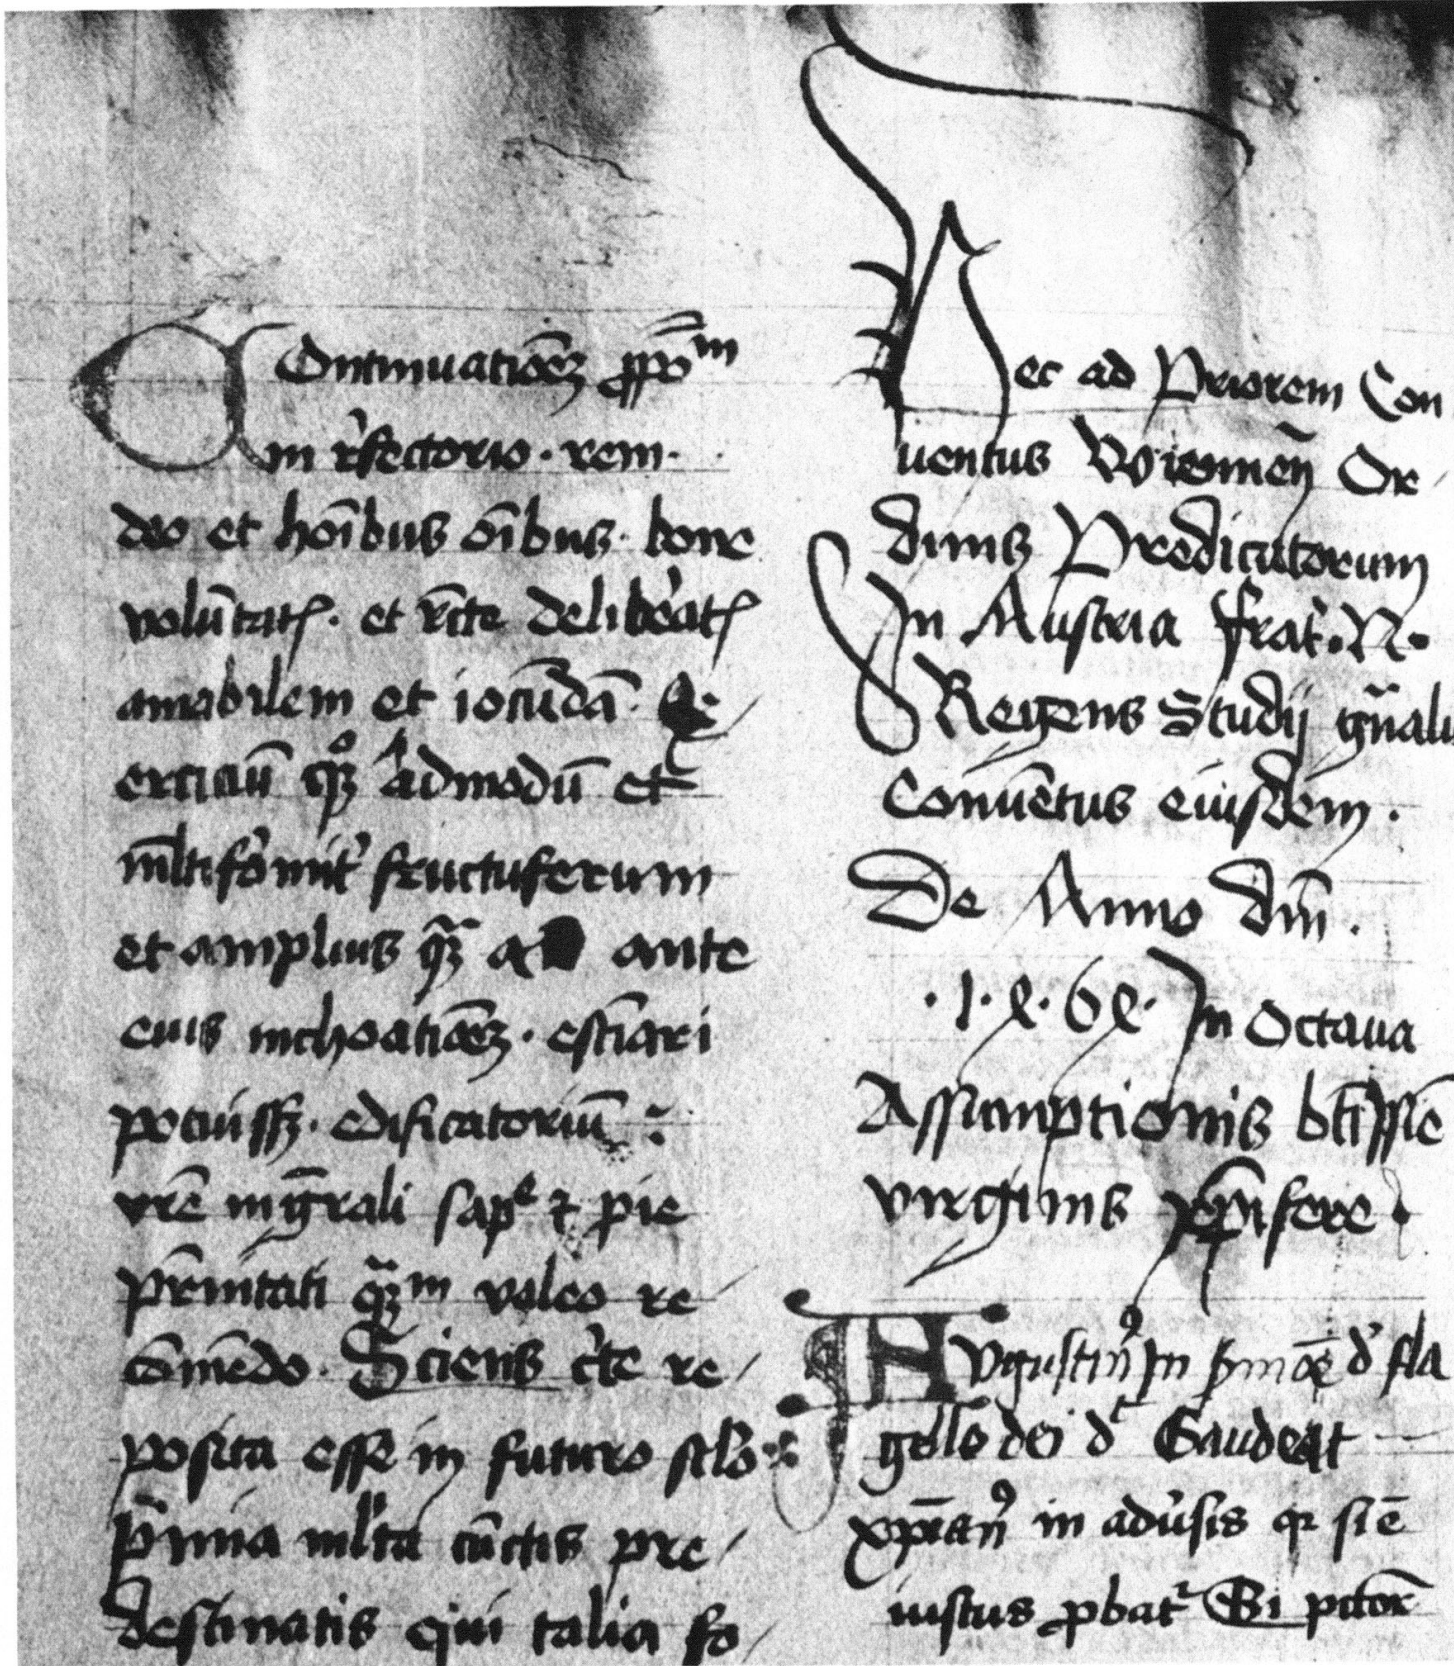 Ontinuatiõeȝ p̱põm
in r̓fectorio · rem ·
deo et hoı̄bus oı̄bus · bone
volūtatꝭ · et rc̄te delib̓atꝭ
amabilem et iocūdā ·
erciciū admodū et
ml̄tifor̓mit̓ fructuferum
et amplius ante
eius inchoatiōeȝ · estīari
potuissȝ · edificatoriū :
vr̄e ingr̄ali sapͤ ⁊ pie
voleo re
cōmēdo · Sciens c̓te re
posita esse in futuro sc̄lo
p̄mia ml̓ta cūctis pre
destinatis qui talia fo
Nec ad Priorem Con
uentus Wienneñ Or
dinis Predicatorum
In Austria frat̓ · N ·
Regens Studij gn̄ali
Conuētus eiusdem ·
De Anno dn̄i ·
· 1 · ℓ · 6ℓ · In Octaua
Assumptionis bt̄issiē
virginis xp̄ifere ·
Augustinꝰ In ẜmōe d̓ fla
gello dei dͨ Gaudeat
xp̄ianꝰ in adu̓sis qꝛ si ē
iustus ꝓbat᷑ Si pctor̄